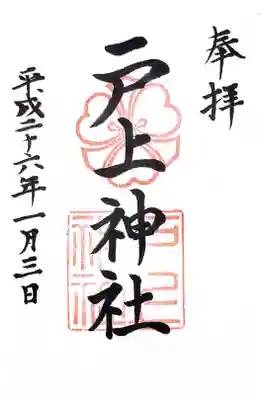 奉拝
戸上神社
平成二十六年一月三日